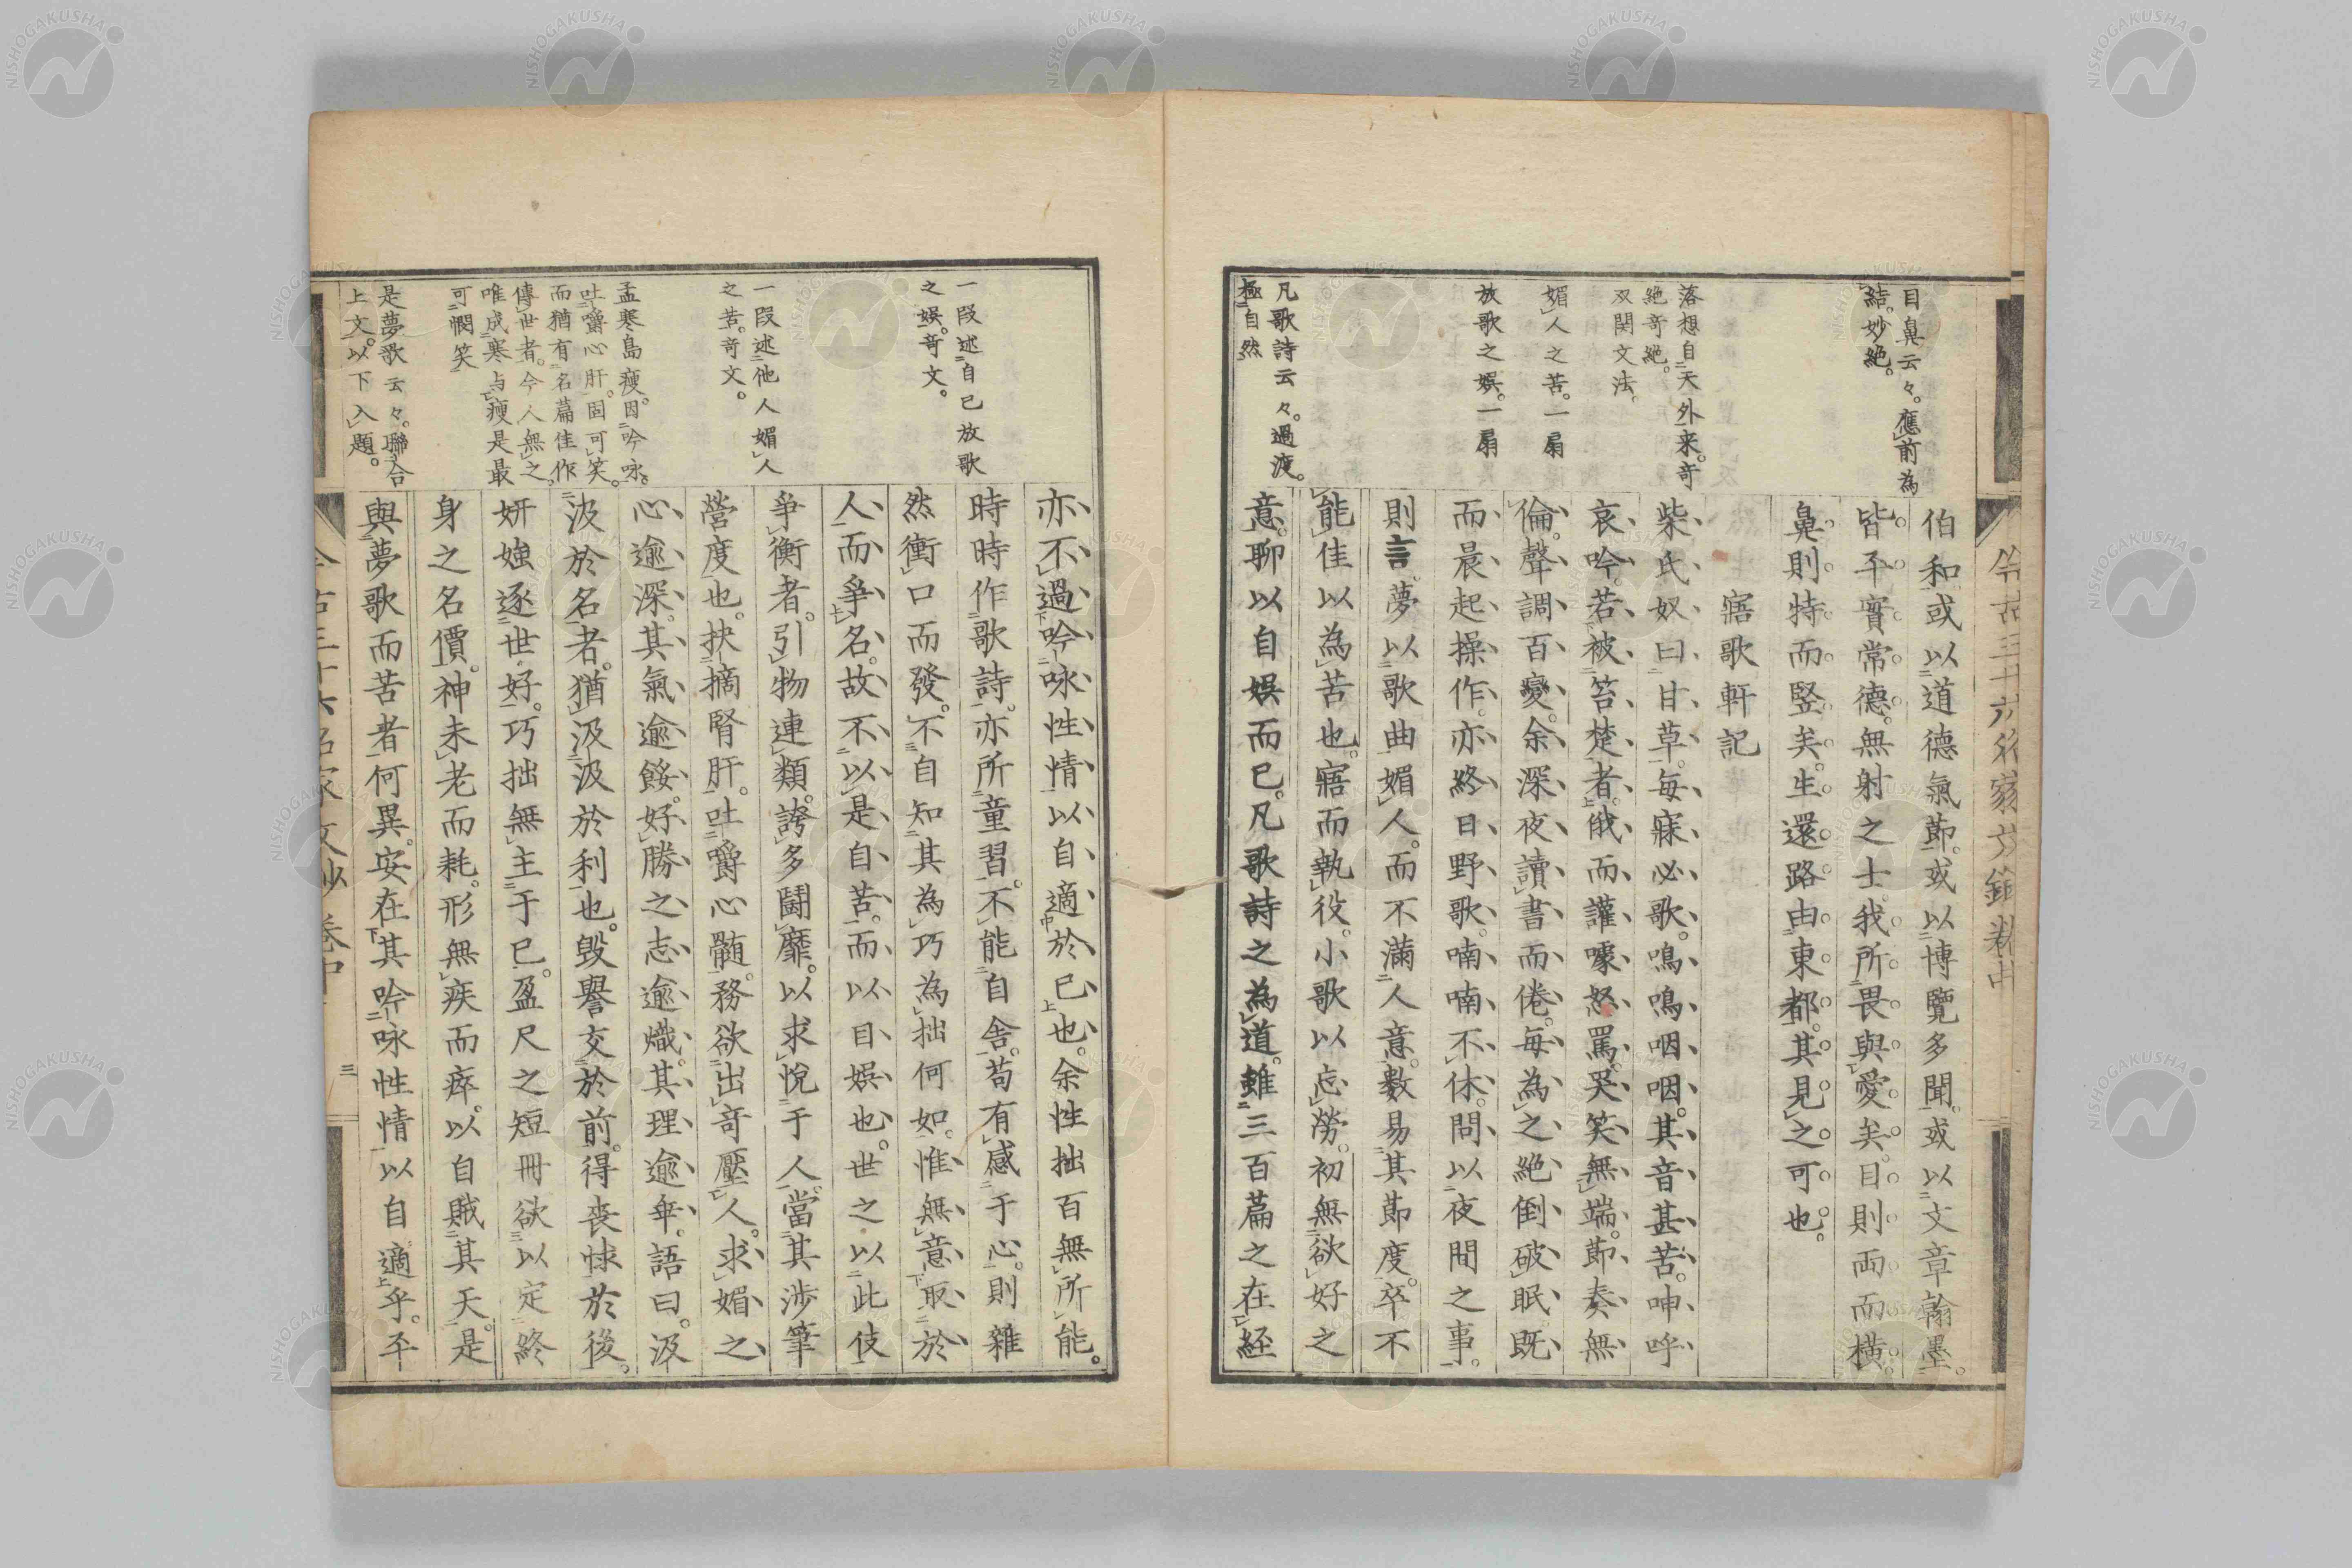 目鼻云々。應前為
結。妙絶。
落想自天外来。奇
絶奇絶。
双関文法
媚人之苦。一扇
放歌之娯。一扇
凡歌詩云々。過渡。
極自然
伯和或以道德氣節。或以博覽多聞。或以文章翰墨。
皆平實常德。無射之士。我所畏與愛矣。目則両而横。
鼻則特而竪矣。生還路由東都。其見之可也。
寤歌軒記
柴氏奴曰甘草。毎寐必歌。鳴鳴咽咽。其音甚苦。呻呼
哀吟。若被笞楚者。俄而讙噱怒罵。哭笑無端。節奏無
倫。聲調百變。余深夜讀書而倦。毎為之絶倒破眠。既
而晨起操作。亦終日野歌。喃喃不休。問以夜間之事。
則言。夢以歌曲媚人。而不滿人意。數易其節度。卒不
能佳以為苦也。寤而執役。小歌以忘勞。初無欲好之
意。聊以自娯而已。凡歌詩之為道。雖三百篇之在經
今古三十六名家文鈔 卷中
一段述自己放歌
之娯。奇文。
一段述他人媚人
之苦。奇文。
孟寒島瘦。因吟咏。
吐嚼心肝。固可笑。
而猶有名篇佳作
傳世者。今人無之。
唯成寒与瘦是最
可憫笑
是夢歌云々。聯合
上文。以下入題。
亦不過吟咏性情以自適於已也。余性拙百無所能。
時時作歌詩。亦所童習。不能自舍。苟有感于心。則雜
然衝口而發。不自知其為巧為拙何如。惟無意取於
人而爭名。故不以是自苦。而以自娯也。世之以此伎
爭衡者。引物連類。誇多鬪靡。以求悅于人。當其渉筆
營度也。抉摘腎肝。吐嚼心髄。務欲出奇壓人。求媚之
心逾深。其氣逾餒。好勝之志逾熾。其理逾舛。語曰。汲
汲於名者。猶汲汲於利也。毀譽交於前。得喪悚於後。
妍媸逐世好。巧拙無主于已。盈尺之短冊欲以定終
身之名價。神未老而耗。形無疾而瘁。以自賊其天。是
與夢歌而苦者何異。安在其吟咏性情以自適乎。平
今古三十六名家文鈔 卷中 三